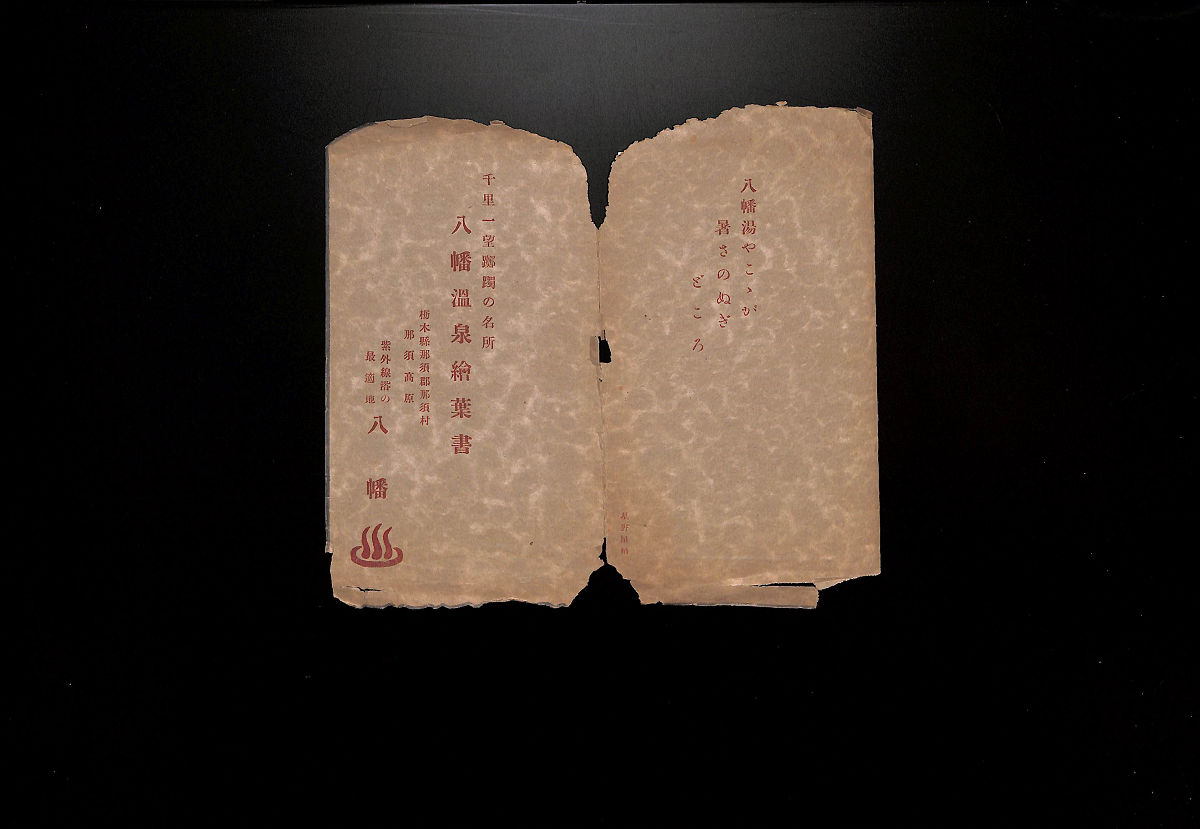 八幡湯やこゝが
暑さのぬぎ
どころ
千里一望躑躅の名所
八幡溫泉繪葉書
栃木縣那須郡那須村
那須高原
紫外線浴の
最適地
八幡